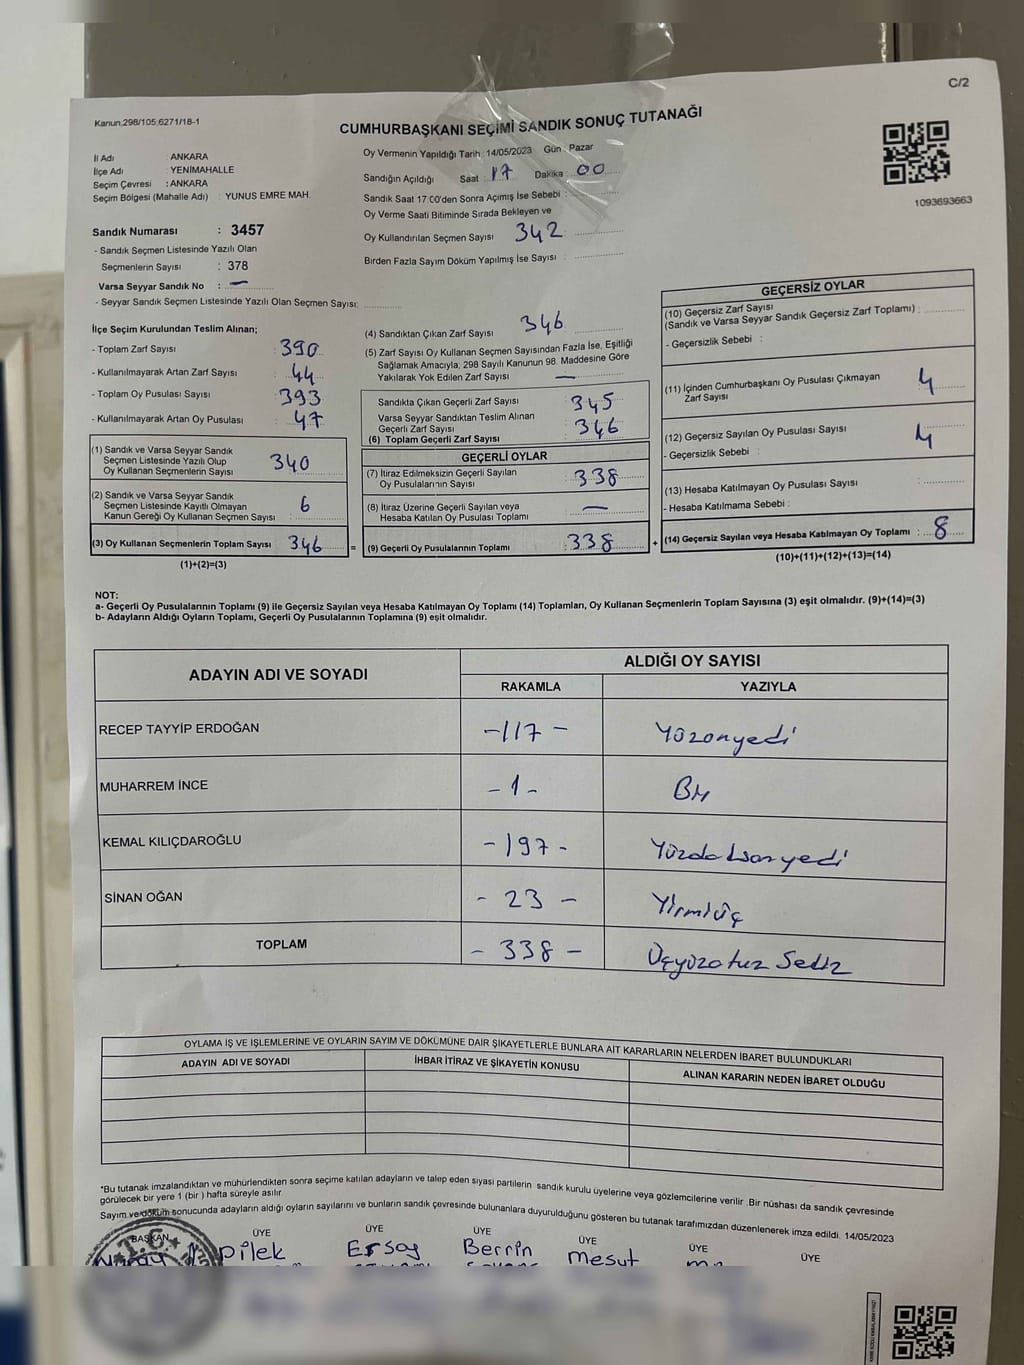 C/2
Kanun:298/105;6271/18-1
CUMHURBAŞKANI SEÇİMİ SANDIK SONUÇ TUTANAĞI
1093693663
İl Adı : ANKARA
İlçe Adı : YENİMAHALLE
Seçim Çevresi : ANKARA
Seçim Bölgesi (Mahalle Adı) : YUNUS EMRE MAH.
Sandık Numarası : 3457
- Sandık Seçmen Listesinde Yazılı Olan
Seçmenlerin Sayısı : 378
Varsa Seyyar Sandık No : —
- Seyyar Sandık Seçmen Listesinde Yazılı Olan Seçmen Sayısı:
Oy Vermenin Yapıldığı Tarih : 14/05/2023 Gün : Pazar
Sandığın Açıldığı Saat : 17 Dakika : 00
Sandık Saat 17:00'den Sonra Açımış İse Sebebi :
Oy Verme Saati Bitiminde Sırada Bekleyen ve
Oy Kullandırılan Seçmen Sayısı 342
Birden Fazla Sayım Döküm Yapılmış İse Sayısı :
İlçe Seçim Kurulundan Teslim Alınan;
- Toplam Zarf Sayısı : 390
- Kullanılmayarak Artan Zarf Sayısı : 44
- Toplam Oy Pusulası Sayısı : 393
- Kullanılmayarak Artan Oy Pusulası : 47
(1) Sandık ve Varsa Seyyar Sandık
Seçmen Listesinde Yazılı Olup
Oy Kullanan Seçmenlerin Sayısı 340
(2) Sandık ve Varsa Seyyar Sandık
Seçmen Listesinde Kayıtlı Olmayan
Kanun Gereği Oy Kullanan Seçmen Sayısı : 6
(3) Oy Kullanan Seçmenlerin Toplam Sayısı : 346 =
(1)+(2)=(3)
(4) Sandıktan Çıkan Zarf Sayısı : 346
(5) Zarf Sayısı Oy Kullanan Seçmen Sayısından Fazla İse, Eşitliği
Sağlamak Amacıyla; 298 Sayılı Kanunun 98. Maddesine Göre
Yakılarak Yok Edilen Zarf Sayısı : —
Sandıkta Çıkan Geçerli Zarf Sayısı : 345
Varsa Seyyar Sandıktan Teslim Alınan
Geçerli Zarf Sayısı : 346
(6) Toplam Geçerli Zarf Sayısı
GEÇERLİ OYLAR
(7) İtiraz Edilmeksizin Geçerli Sayılan
Oy Pusulalarının Sayısı : 338
(8) İtiraz Üzerine Geçerli Sayılan veya
Hesaba Katılan Oy Pusulası Toplamı : —
(9) Geçerli Oy Pusulalarının Toplamı : 338 +
GEÇERSİZ OYLAR
(10) Geçersiz Zarf Sayısı
(Sandık ve Varsa Seyyar Sandık Geçersiz Zarf Toplamı) :
- Geçersizlik Sebebi :
(11) İçinden Cumhurbaşkanı Oy Pusulası Çıkmayan
Zarf Sayısı : 4
(12) Geçersiz Sayılan Oy Pusulası Sayısı : 4
- Geçersizlik Sebebi :
(13) Hesaba Katılmayan Oy Pusulası Sayısı :
- Hesaba Katılmama Sebebi :
(14) Geçersiz Sayılan veya Hesaba Katılmayan Oy Toplamı : 8
(10)+(11)+(12)+(13)=(14)
NOT:
a- Geçerli Oy Pusulalarının Toplamı (9) ile Geçersiz Sayılan veya Hesaba Katılmayan Oy Toplamı (14) Toplamları, Oy Kullanan Seçmenlerin Toplam Sayısına (3) eşit olmalıdır. (9)+(14)=(3)
b- Adayların Aldığı Oyların Toplamı, Geçerli Oy Pusulalarının Toplamına (9) eşit olmalıdır.
ADAYIN ADI VE SOYADI
ALDIĞI OY SAYISI
RAKAMLA YAZIYLA
RECEP TAYYİP ERDOĞAN -117- Yüzonyedi
MUHARREM İNCE -1- Bir
KEMAL KILIÇDAROĞLU -197- Yüzdoksanyedi
SİNAN OĞAN -23- Yirmiüç
TOPLAM -338- Üçyüzotuz Sekiz
OYLAMA İŞ VE İŞLEMLERİNE VE OYLARIN SAYIM VE DÖKÜMÜNE DAİR ŞİKAYETLERLE BUNLARA AİT KARARLARIN NELERDEN İBARET BULUNDUKLARI
ADAYIN ADI VE SOYADI İHBAR İTİRAZ VE ŞİKAYETİN KONUSU ALINAN KARARIN NEDEN İBARET OLDUĞU
*Bu tutanak imzalandıktan ve mühürlendikten sonra seçime katılan adayların ve talep eden siyasi partilerin sandık kurulu üyelerine veya gözlemcilerine verilir .Bir nüshası da sandık çevresinde
görülecek bir yere 1 (bir ) hafta süreyle asılır
Sayım ve döküm sonucunda adayların aldığı oyların sayılarını ve bunların sandık çevresinde bulunanlara duyurulduğunu gösteren bu tutanak tarafımızdan düzenlenerek imza edildi. 14/05/2023
BAŞKAN ÜYE ÜYE ÜYE ÜYE ÜYE ÜYE
Dilek Ersoy Berrin Mesut
T.C.